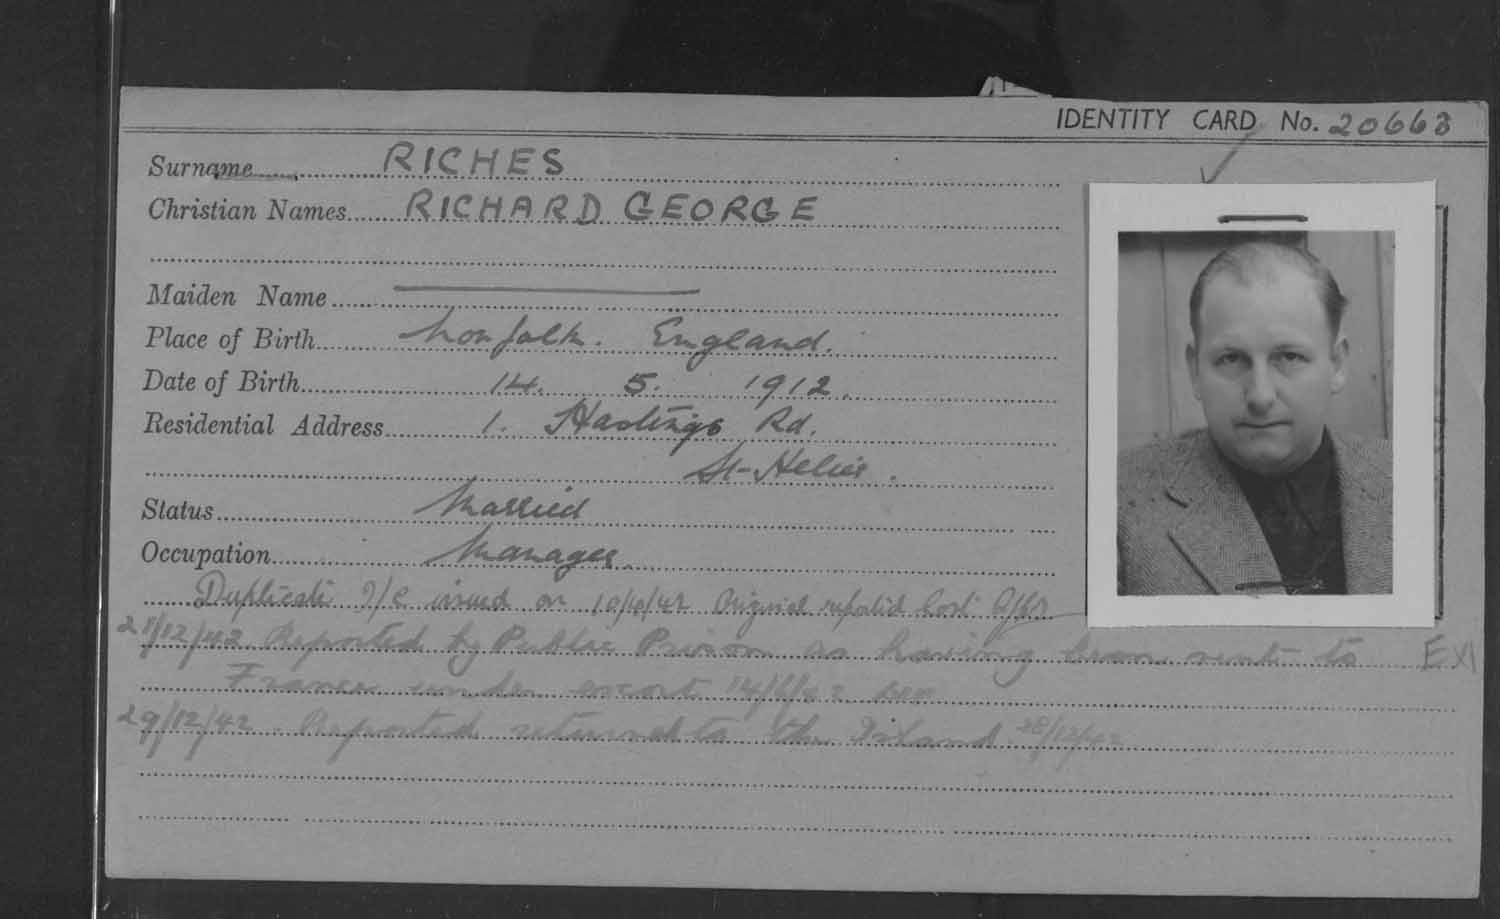 IDENTITY CARD No. 20663
Surname RICHES
Christian Names RICHARD GEORGE
Maiden Name
Place of Birth Norfolk. England.
Date of Birth 14. 5. 1912.
Residential Address 1. Hastings Rd.
St-Helier.
Status Married
Occupation Manager.
Duplicate I/C issued on Original reported lost
21/12/42 Reported by Public Prison as having been sent to EX
France under escort 14/6/42
29/12/42. Reported returned to the Island 28/12/42